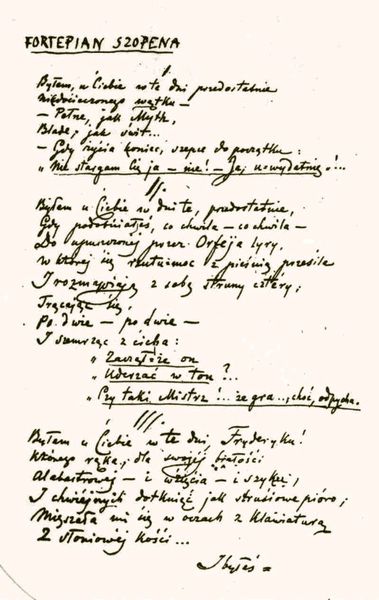 FORTEPIAN SZOPENA
I.
Byłem u Ciebie w te dni przedostatnie
Niedocieczonego wątku —
— Pełne, jak Myth,
Blade, jak świt...
— Gdy życia koniec szepce do początku:
„Nie stargam Cię ja — nie! — Ja, uwydatnię!...
II.
Byłem u Ciebie w dni te, przedostatnie,
Gdy podobniałeś, co chwila — co chwila —
Do upuszczonej przez Orfeja liry,
W której się rzutu-moc z pieśnią przesila
I rozmawiają z sobą struny cztéry,
Trącając się,
Po dwie — po dwie —
I szemrząc z cicha:
„Zacząłże on
„Uderzać w ton?...
„Czy taki Mistrz!... że gra..., choć, odpycha.
III.
Byłem u Ciebie w te dni, Fryderyku!
Którego ręka, dla swojéj białości
Alabastrowéj — i wzięcia — i szyku,
I chwiejnych dotknięć jak strusiowe pióro,
Mięszała mi się w oczach z klawiaturą
Z słoniowéj kości...
I byłeś =